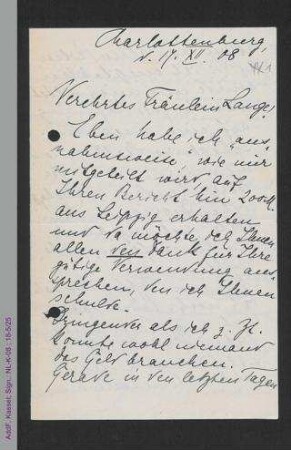 Charlottenburg,
d. 17. XII. 08
Verehrtes Fräulein Lange!
Eben habe ich „aus-
nahmsweise“, wie mir
mitgeteilt wird, auf
Ihren Bericht hin 200 M.
aus Leipzig erhalten
und da möchte ich Ihnen
allen den Dank für Ihre
gütige Verwendung aus-
sprechen, den ich Ihnen
schulde.
Dringender als ich z. Zt.
konnte wohl niemand
das Geld brauchen.
Gerade in den letzten Tagen
AddF, Kassel; Sign.: NL-K-08 ; 18-5/25